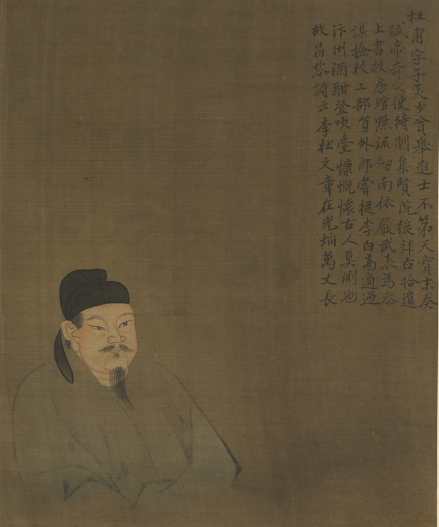 杜甫字子美少貧舉進士不第天寶末奏
賦帝奇之使待制集賢院後拜右拾遺
上書救房琯黜流劍南依嚴武表為參
謀檢校工部員外郎嘗從李白高適過
汴州酒酣登吹臺慷慨懷古人莫測也
故昌黎詩云李杜文章在光焰萬丈長